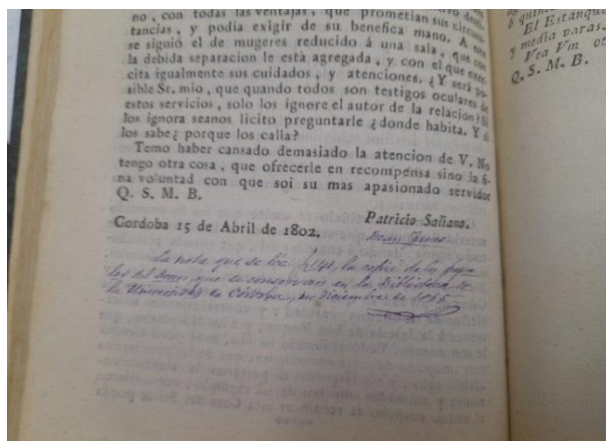 no, con todas las ventajas, que prometian sus circuns-
tancias, y podia exigir de su benefica mano. A este
se siguió el de mugeres reducido á una sala, que con
la debida separacion le está agregada, y con el que exer-
cita igualmente sus cuidados, y atenciones. ¿Y será po-
sible Sr. mio, que quando todos son testigos oculares de
estos servicios, solo los ignore el autor de la relacion? Si
los ignora seanos licito preguntarle ¿donde habita. Y si
los sabe ¿porque los calla?
Temo haber cansado demasiado la atencion de V. No
tengo otra cosa, que ofrecerle en recompensa sino la fi-
na voluntad con que soi su mas apasionado servidor
Q. S. M. B.
Patricio Saliano.
Cordoba 15 de Abril de 1802.
Dean Funes
La nota que se lee la copié de los pape
les del Dean, que se conservan en la Biblioteca de
la Universidad de Córdoba, en diciembre de 1865
El Estanqu
y media varas.
Vea Vm ot
Q. S. M. B.